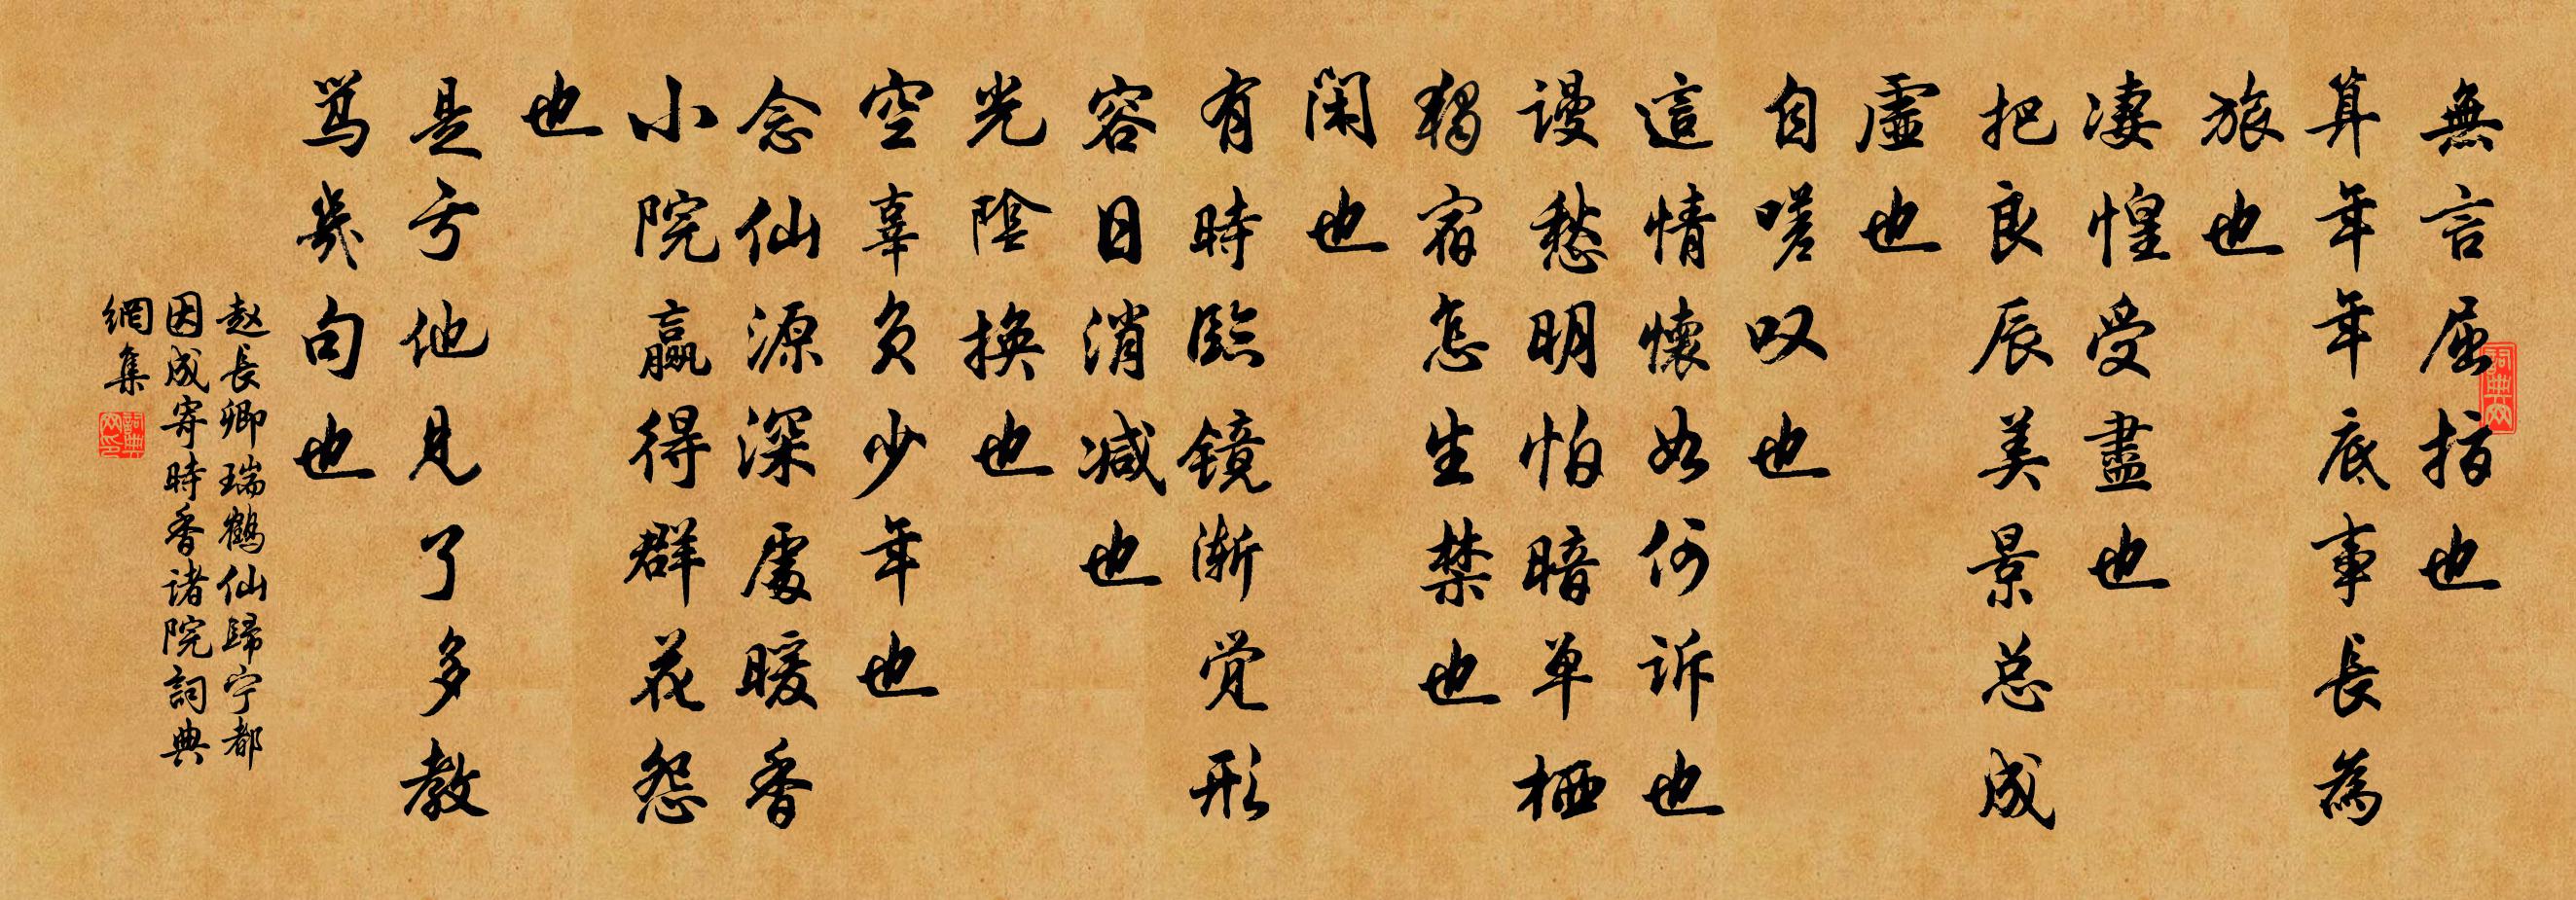 無言屈指也
算年年年底事長為
旅也
凄惶受盡也
把良辰美景总成
虛也
自嗟叹也
這情懷如何诉也
谩愁明怕暗单栖
独宿怎生禁也
闲也
有時臨镜渐觉形
容日消减也
光陰换也
空辜负少年也
念仙源深處暖香
小院赢得群花怨
也
是亏他见了多教
骂幾句也
赵長卿瑞鹤仙歸宁都
因成寄時香诸院詞典
網集